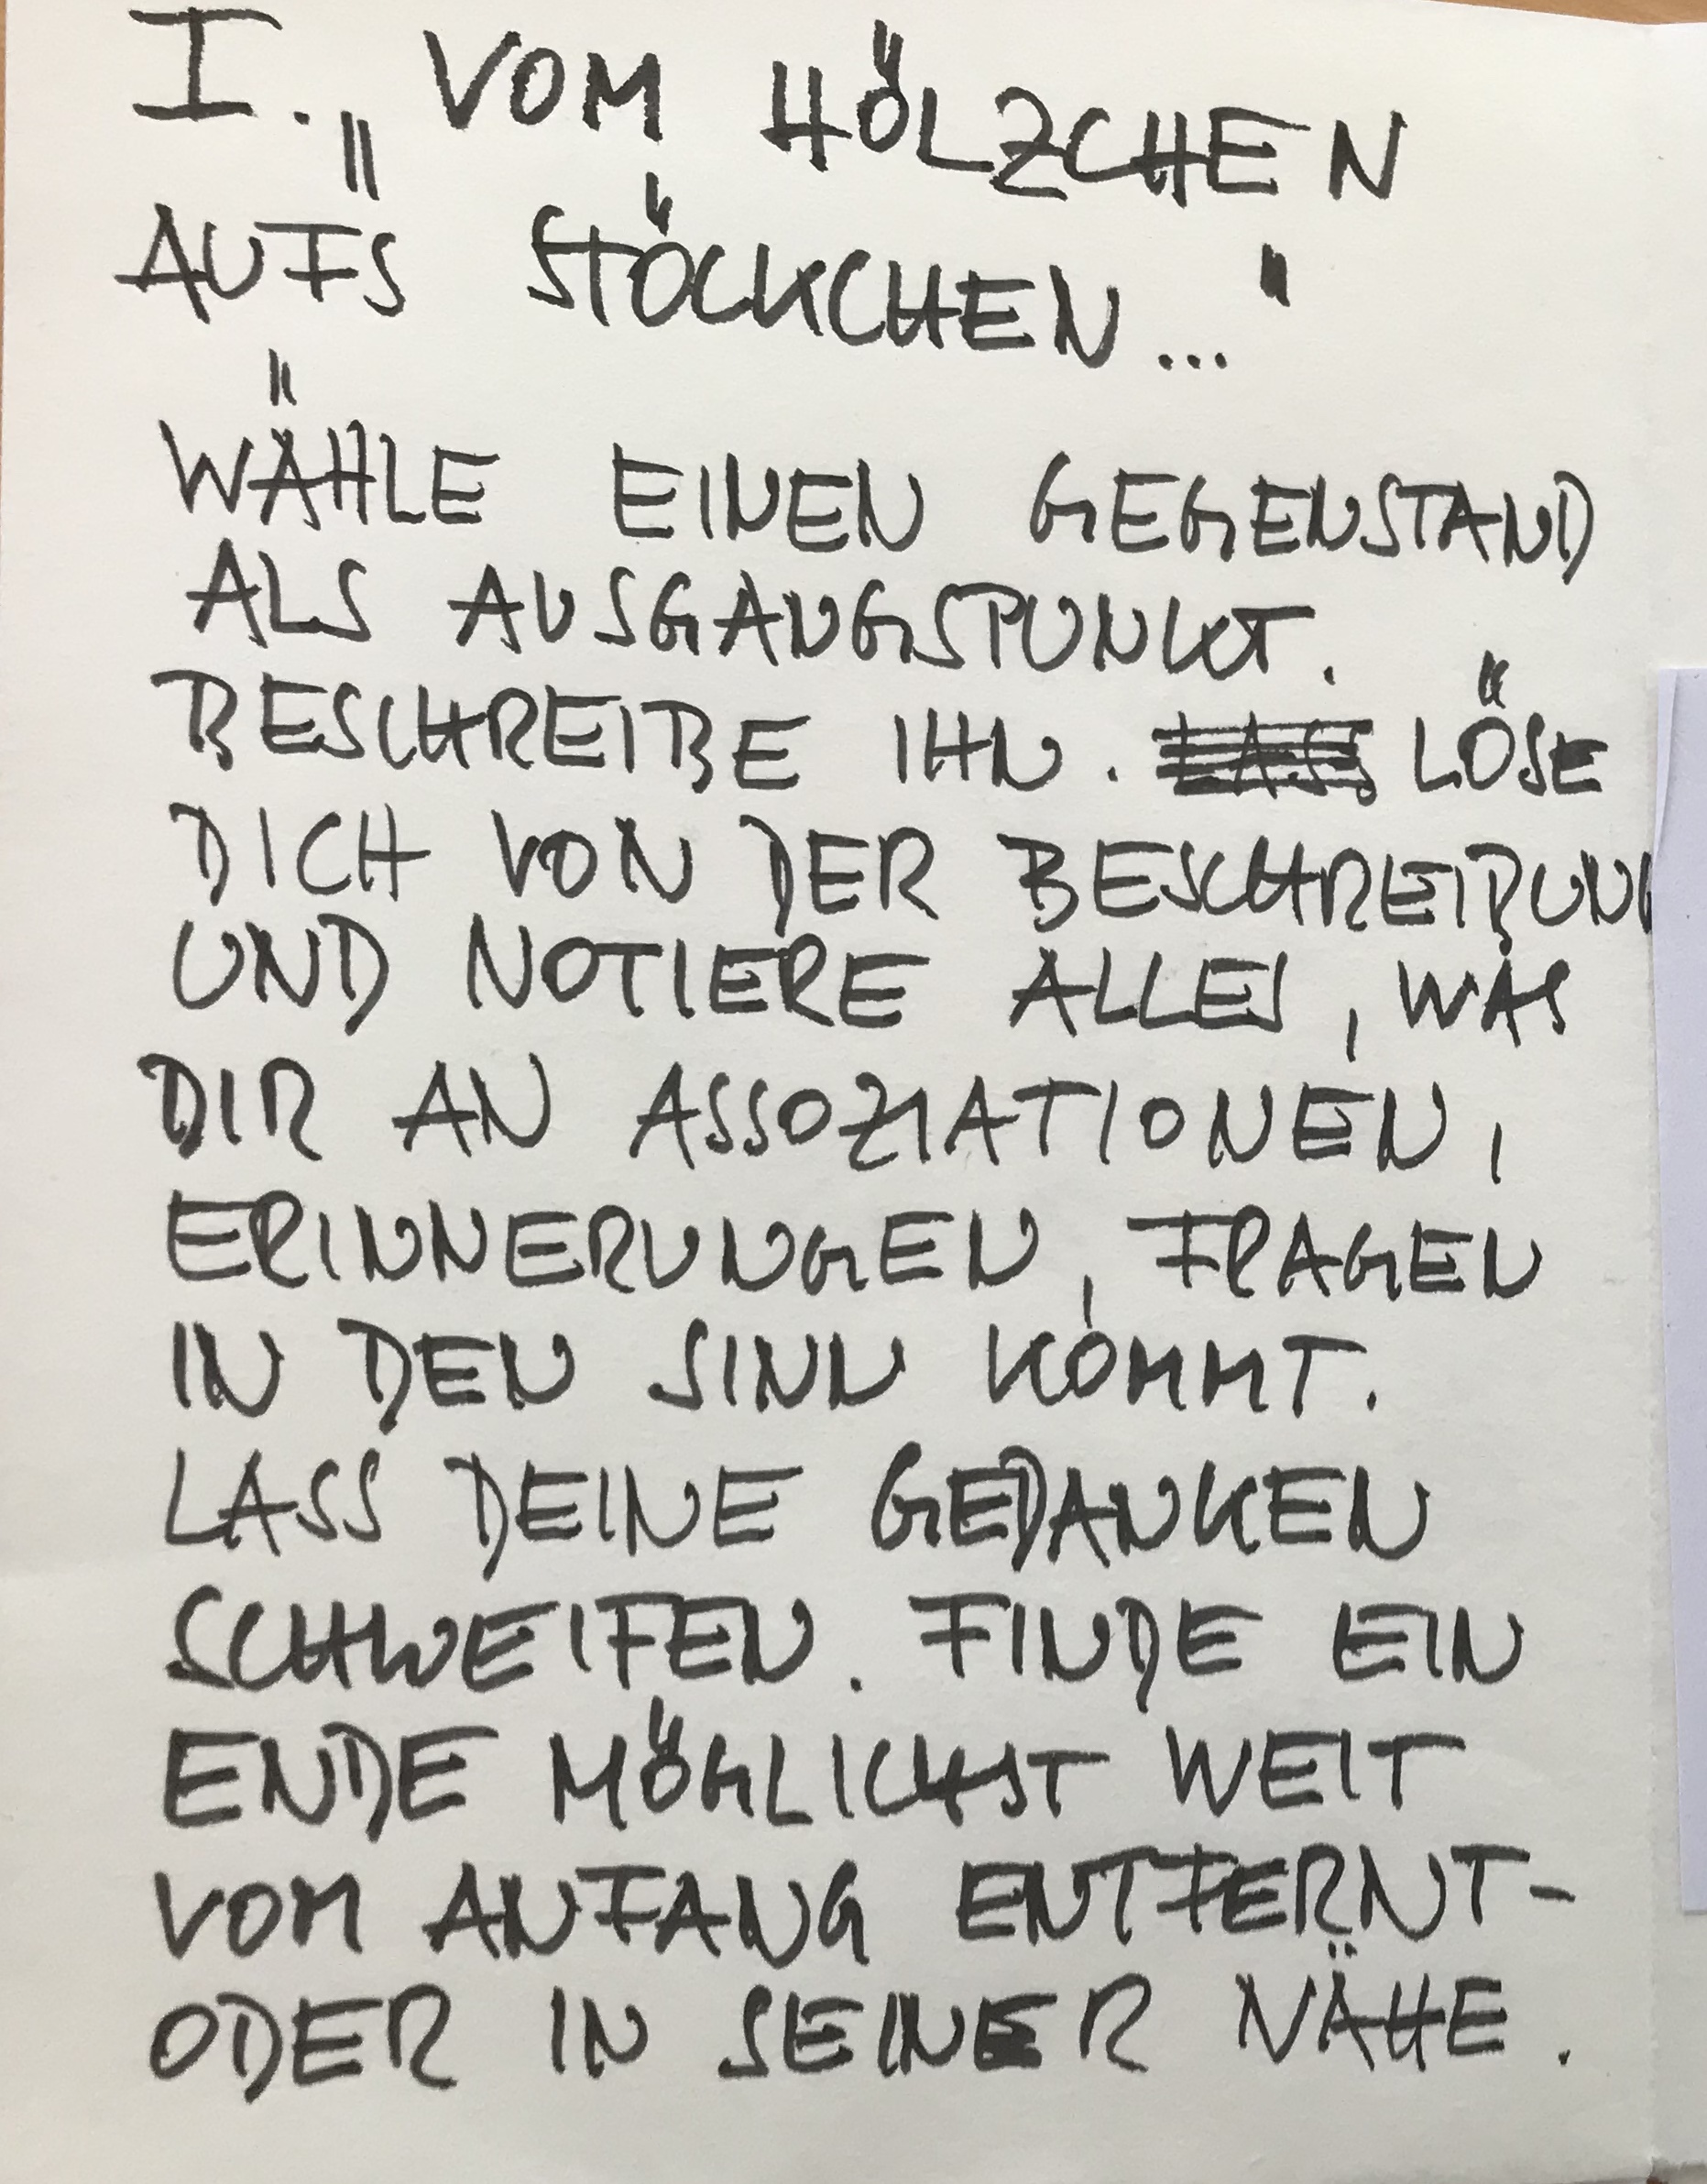 I. „VOM HÖLZCHEN
AUFS STÖCKCHEN..."
WÄHLE EINEN GEGENSTAND
ALS AUSGANGSPUNKT.
BESCHREIBE IHN. LÖSE
DICH VON DER BESCHREIBUNG
UND NOTIERE ALLES, WAS
DIR AN ASSOZIATIONEN,
ERINNERUNGEN, FRAGEN
IN DEN SINN KOMMT.
LASS DEINE GEDANKEN
SCHWEIFEN. FINDE EIN
ENDE MÖGLICHST WEIT
VOM ANFANG ENTFERNT-
ODER IN SEINER NÄHE.